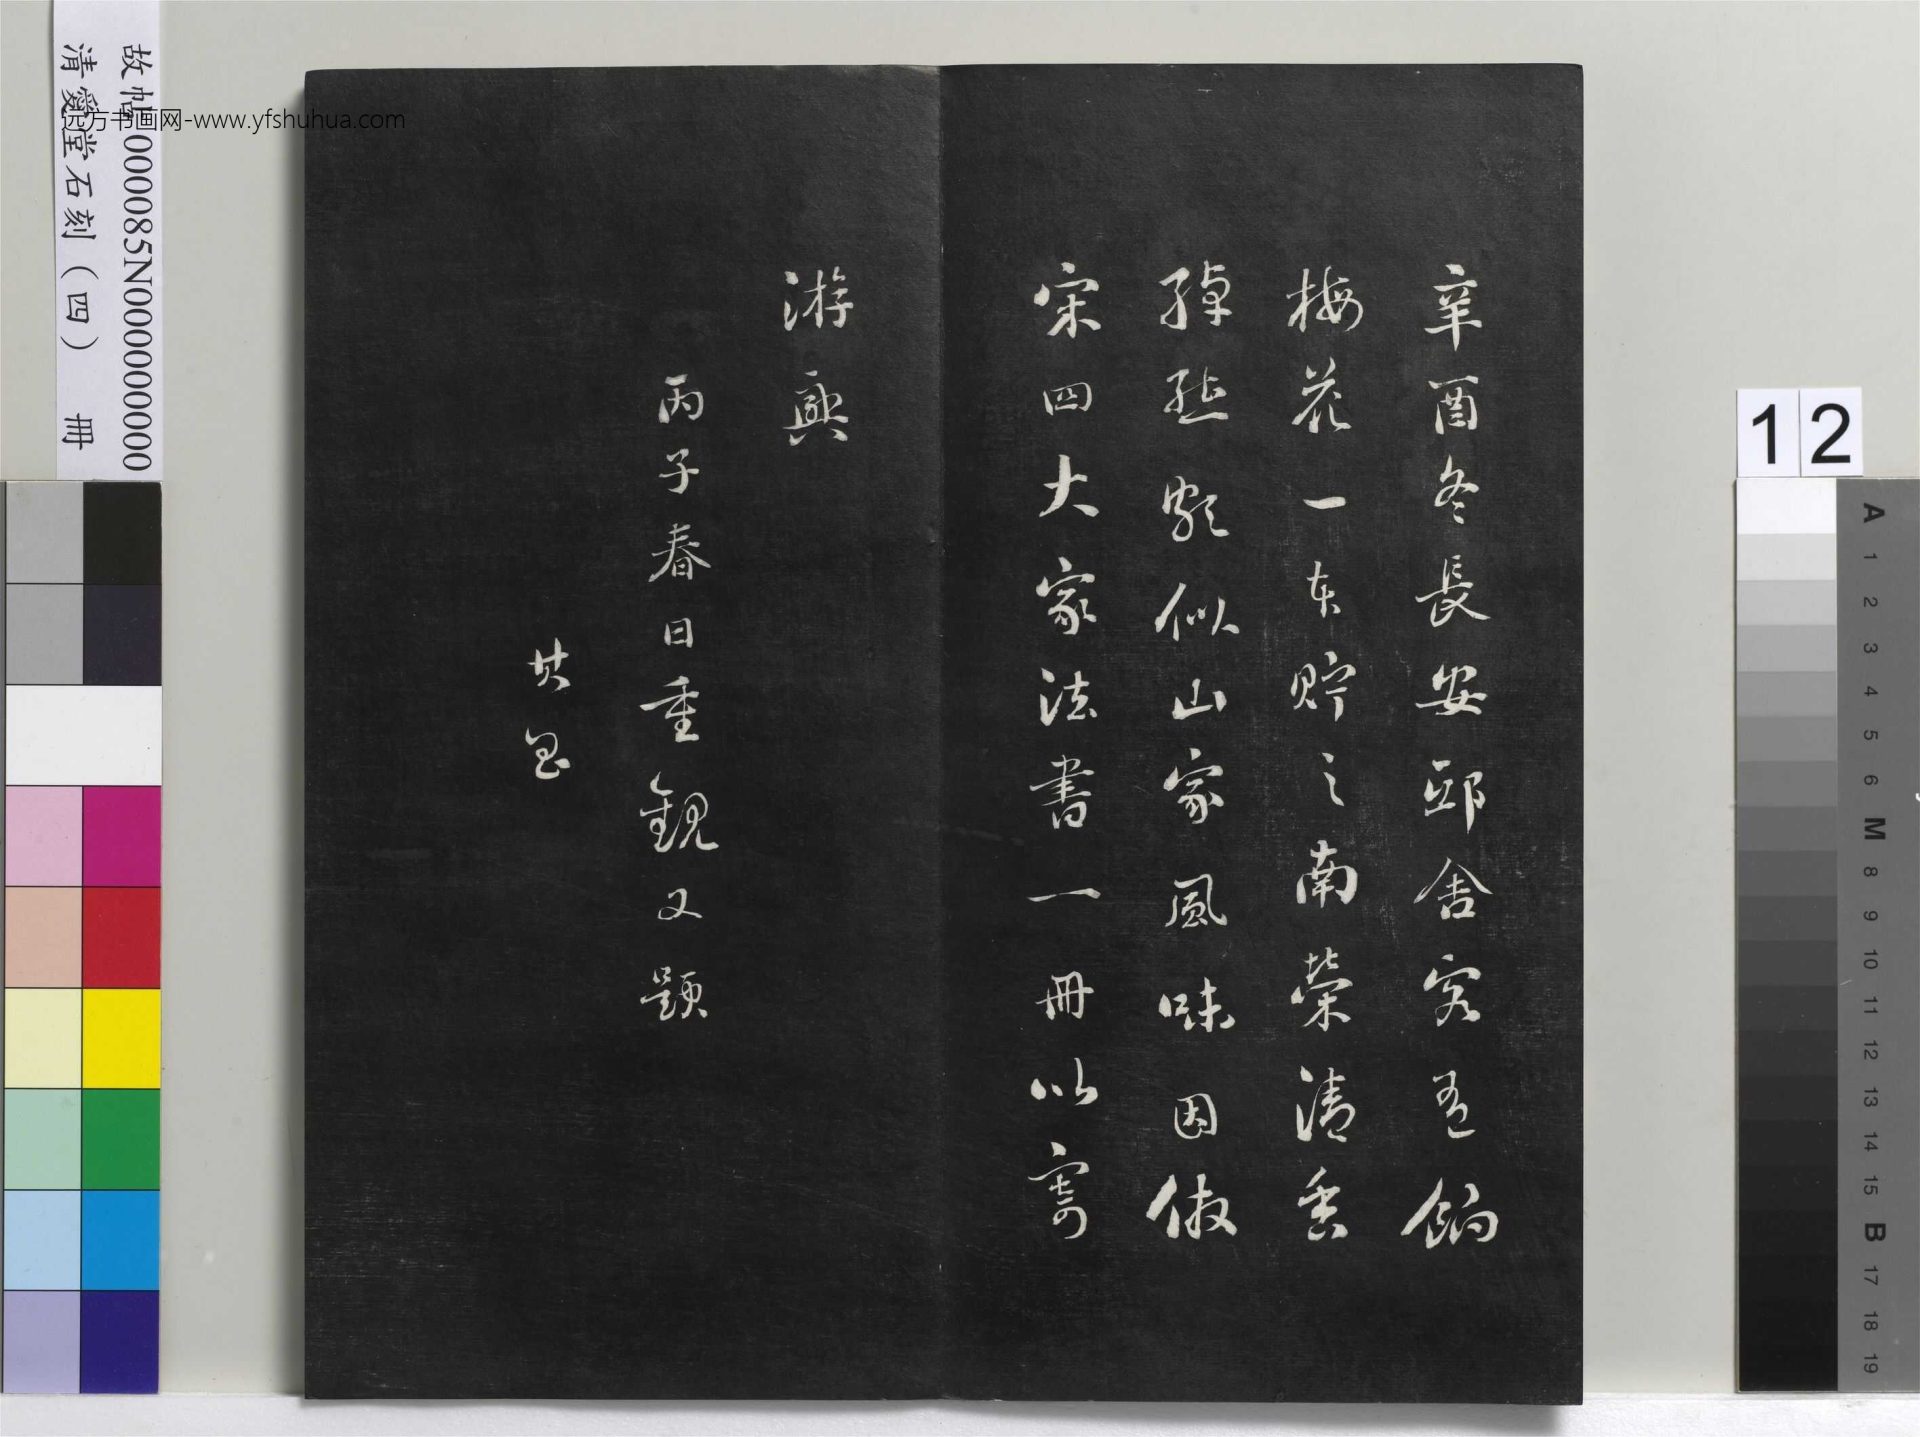 辛酉冬長安邸舍客有餉
梅花一束貯之南榮清香
綽約頗似山家風味因倣
宋四大家法書一冊以寄
游興
丙子春日重觀又題
其昌
故帖000085N000000000
清愛堂石刻（四） 冊
远方书画网-www.yfshuhua.com
12
A
1
2
3
4
5
6
M
8
9
10
11
12
13
14
15
B
17
18
19